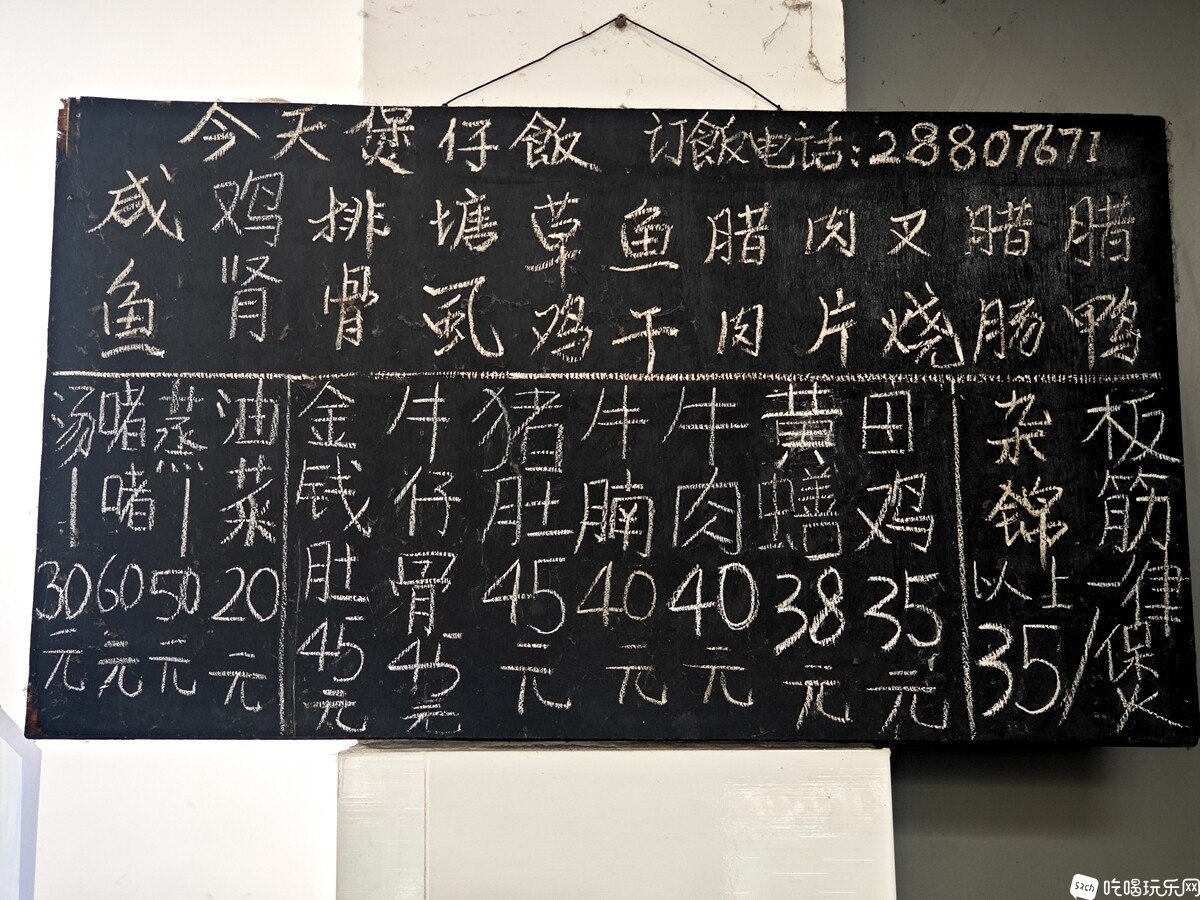 今天煲仔飯 订飯电话:28807671
咸鱼
鸡肾
排骨
塘虱
草鸡
鱼干
腊肉
肉片
叉烧
腊肠
腊鸭
汤—30元
啫啫60元
蒸—50元
油菜20元
金钱肚45元
牛仔骨45元
猪肚45元
牛腩40元
牛肉40元
黄鳝38元
田鸡35元
杂锦
板筋
以上一律
35/煲
52ch 吃喝玩乐网